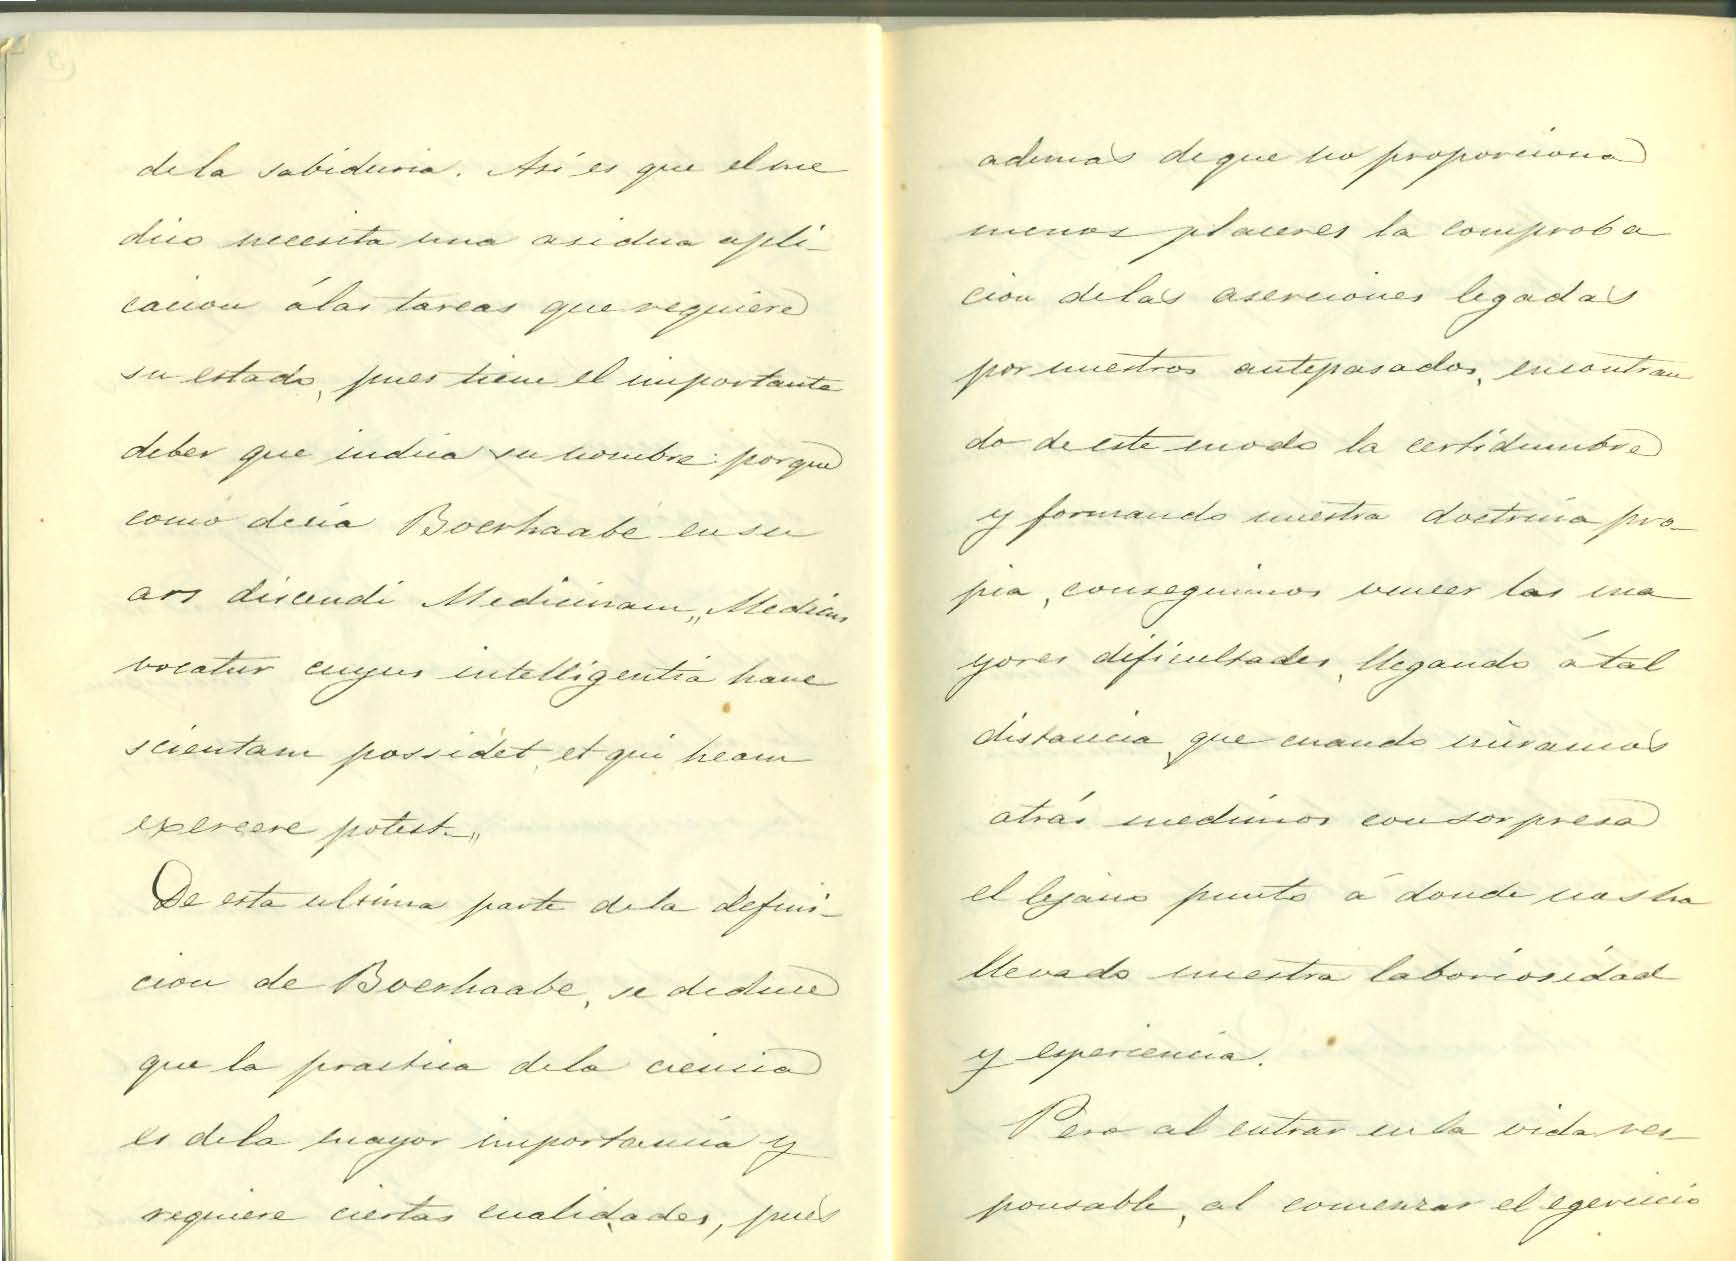 de la sabiduria. Asi es que el me
dico necesita una asidua apli-
cacion á las tareas que requiere
su estado, pues tiene el importante
deber que indica su nombre: porque
como decia Boerhaabe en su
ars discendi Medicinam,, Medicus
vocatur cuyus intelligentia hanc
scientam possidet, et qui heam
exercere potest.,,
De esta ultima parte de la defini-
cion de Boerhaabe, se deduce
que la practica de la ciencia
es de la mayor importancia y
requiere ciertas cualidades, pues
ademas de que no proporciona
menos placeres la comproba
cion de las aserciones legadas
por nuestros antepasados, encontran
do de este modo la certidumbre
y formando nuestra doctrina pro-
pia, conseguimos vencer las ma
yores dificultades, llegando á tal
distancia, que cuando miramos
atrás medimos con sorpresa
el lejano punto á donde nos ha
llevado nuestra laboriosidad
y esperiencia.
Pero al entrar en la vida res-
ponsable, al comenzar el egercicio